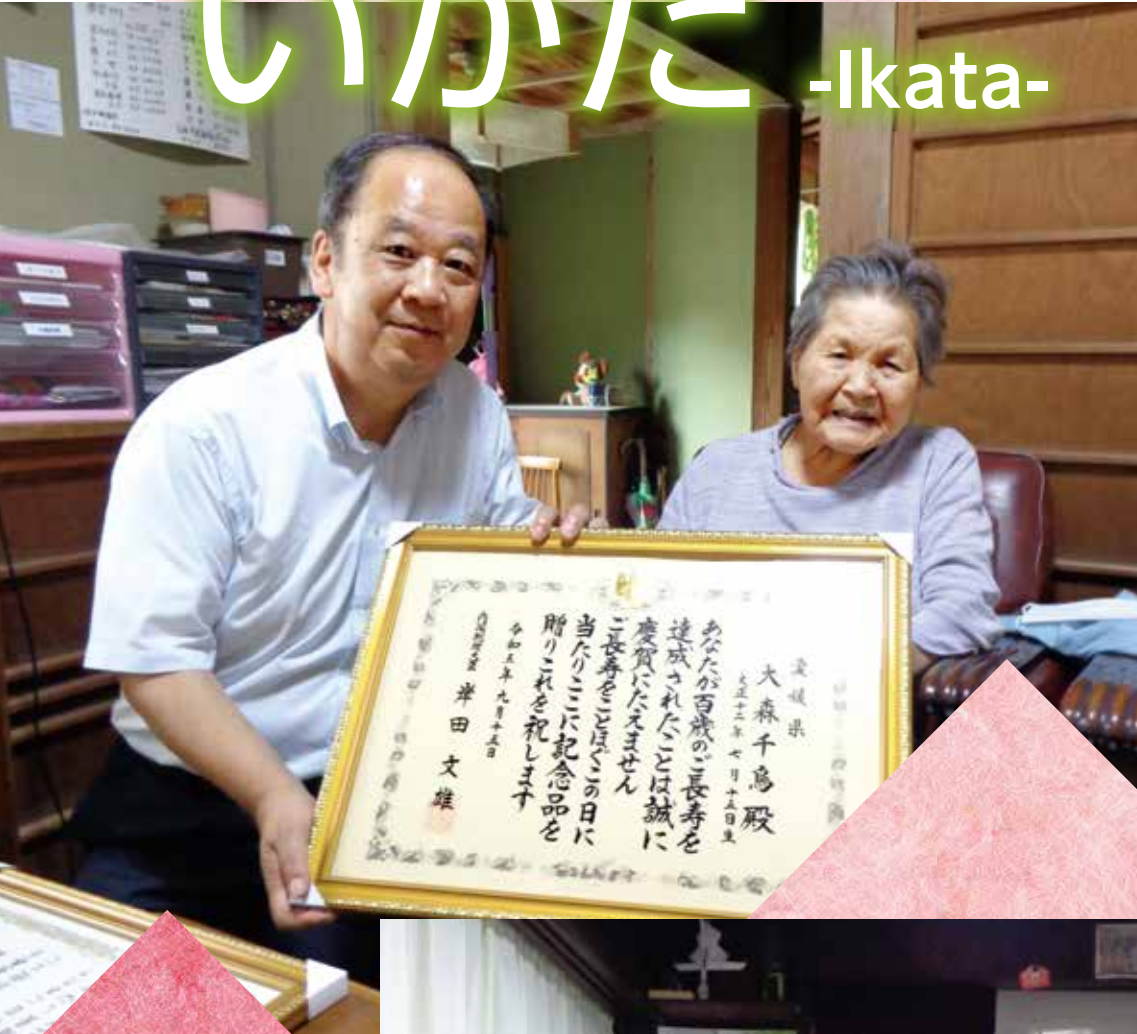 いかた
-Ikata-
愛媛県
大森千鳥殿
大正十二年七月十五日生
あなたが百歳のご長寿を
達成されたことは誠に
慶賀にたえません
ご長寿をことほぐこの日に
当たりここに記念品を
贈りこれを祝します
令和五年九月十五日
内閣総理大臣 岸田文雄